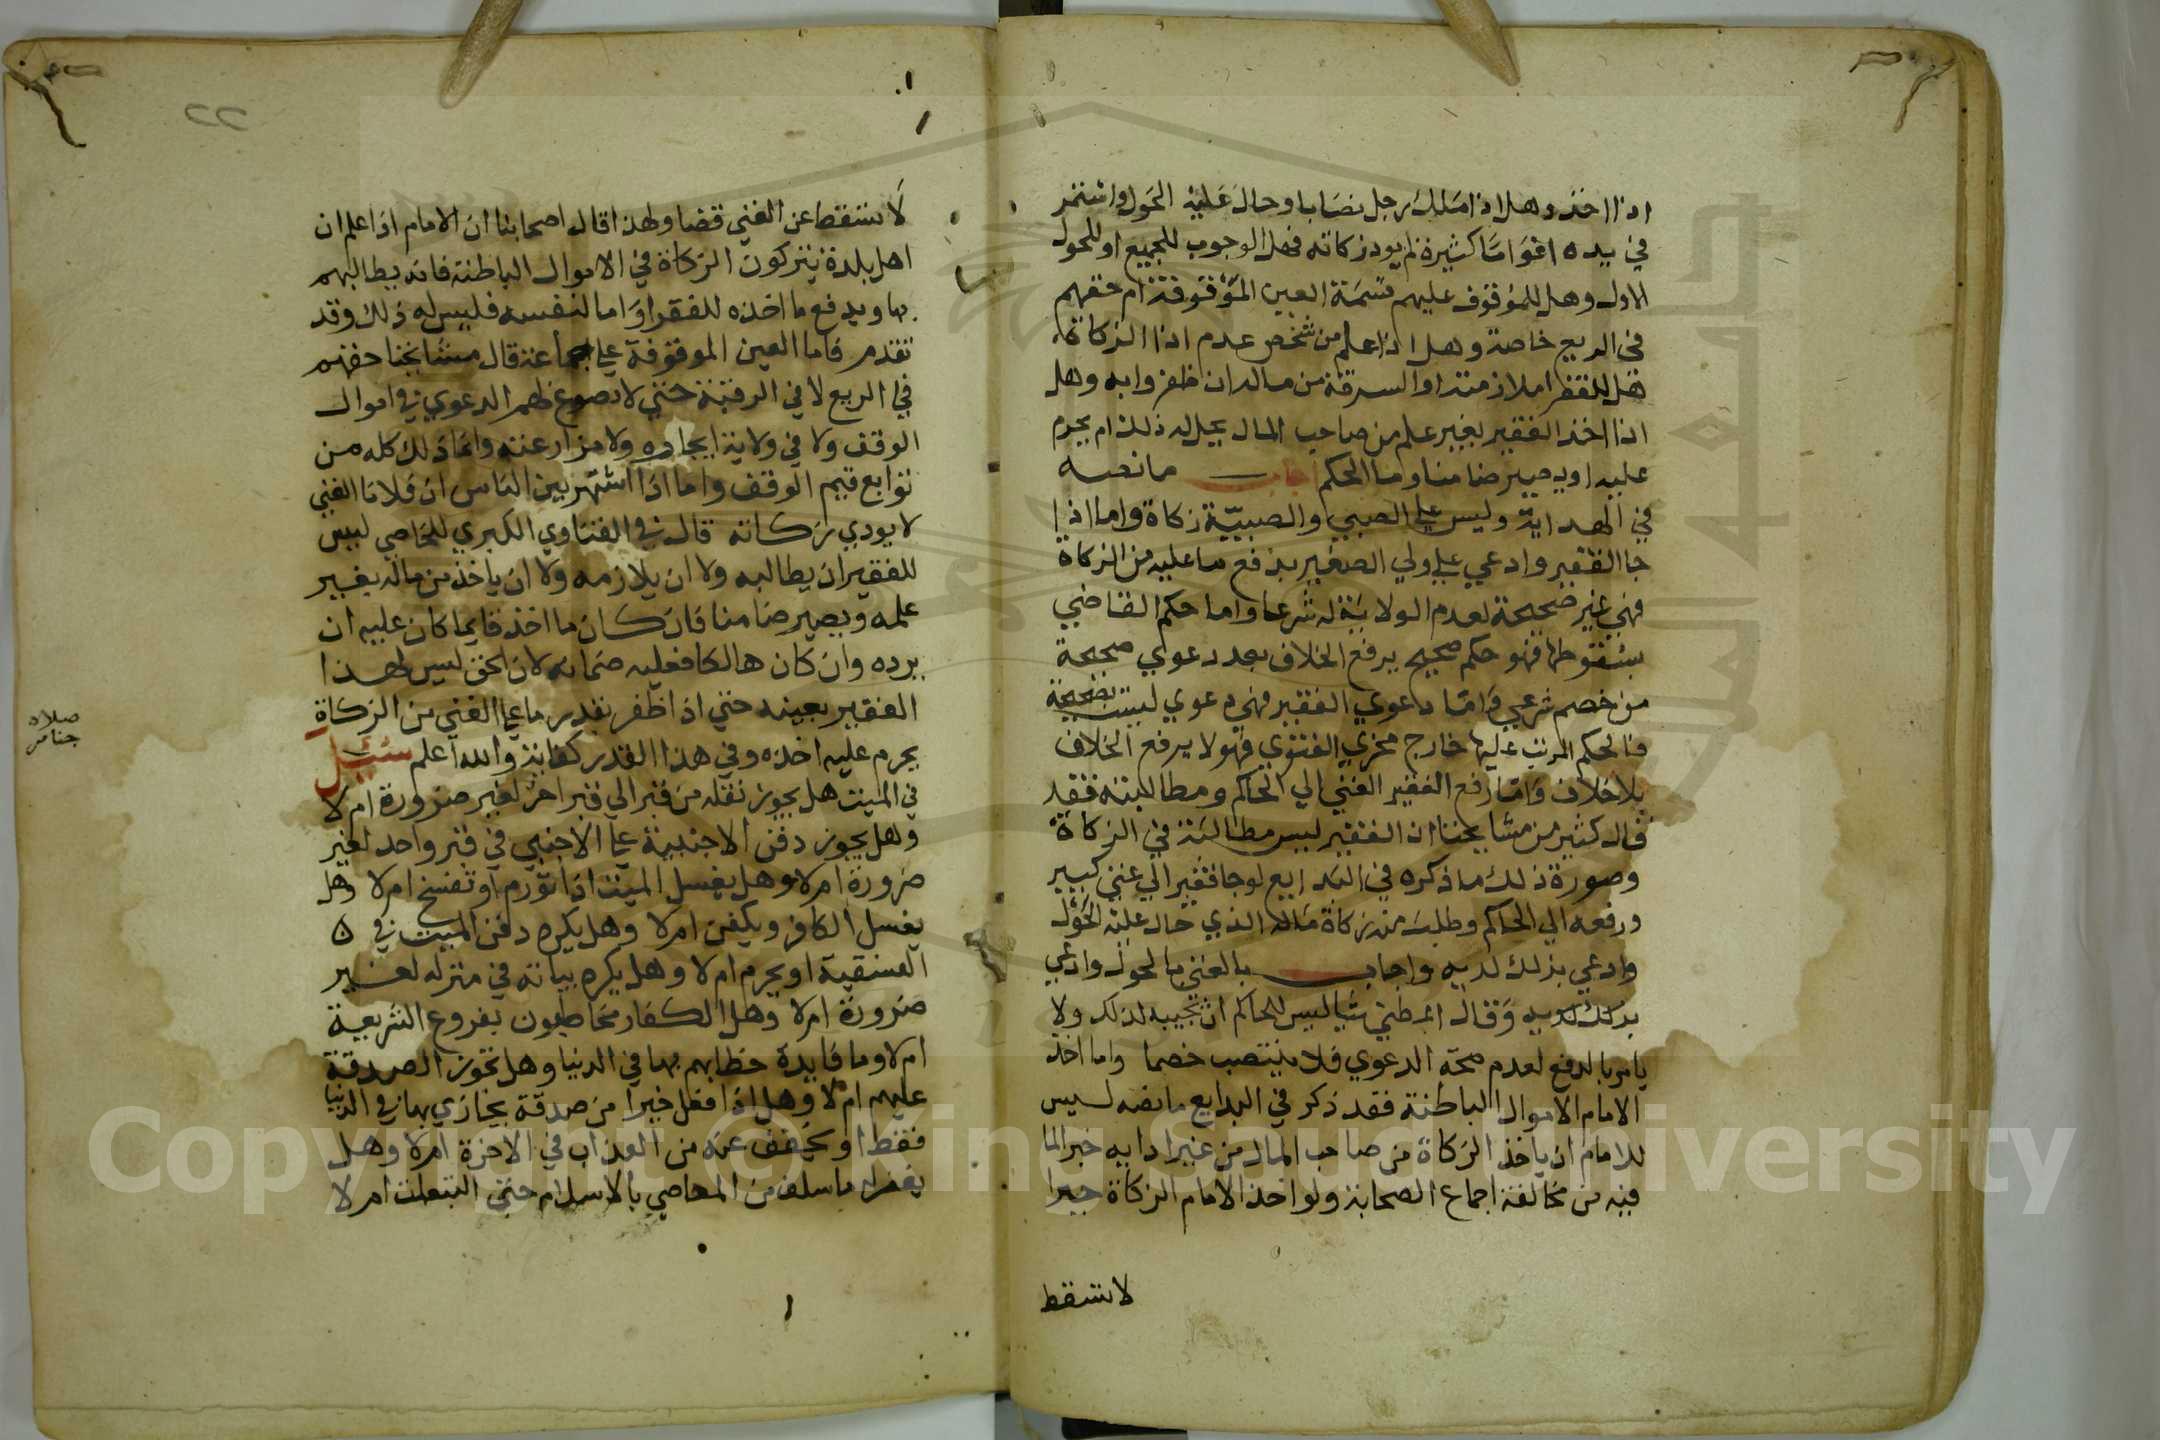 اذا اخذ وهل اذا ملك رجل نصابا وحال عليه الحول واستمر
في يده اعواما كثيرة لم يود زكاته فهل الوجوب للجميع او للحول
الاول وهل للموقوف عليهم قسمة العين الموقوفة ام حقهم
في الريع خاصة وهل اذا علم من شخص عدم اذا الزكاة
هل للفقرا ملازمته او السرقة من ماله ان ظفروا به وهل
اذا اخذ الفقير بغير علم من صاحب المال يحل له ذلك ام يحرم
عليه او يصير ضامنا وما الحكم اجاب ما نصه
في الهداية وليس علي الصبي والصبيية زكاة واما اذا
جا الفقير وادعي علي ولي الصغير بدفع ما عليه من الزكاة
فهي غير صحيحة لعدم الولاية له شرعا واما حكم القاضي
بسقوطها فهو حكم صحيح يرفع الخلاف بعد دعوي صحيحة
من خصم شرعي واما دعوي الفقير فهي دعوي ليست بصحيحة
فالحكم المرتب عليها خارج مخرج الفتوي فهو لا يرفع الخلاف
بلا خلاف واما رفع الفقير الغني الي الحاكم ومطالبته فقد
قال كثير من مشايخنا ان الفقير ليس مطالبته في الزكاة
وصورة ذلك ما ذكره في البدايع لو جا فقير الي غني كبير
ورفعه الي الحاكم وطلب من زكاة ماله الذي حال عليه الحول
وادعي بذلك لديه واجاب بالغني بالحول وادعي
بذلك لديه وقال لم يطني شيا ليس للحاكم ان يجيبه لذلك ولا
يامر بالدفع لعدم صحة الدعوي فلا ينتصب خصما واما اخذ
الامام الاموال الباطنة فقد ذكر في البدايع ما نصه ليس
للامام ان ياخذ الزكاة من صاحب المال من غير ادايه خبرا لما
فيه من مخالفة اجماع الصحابة ولو اخذ الامام الزكاة جبرا
لا تسقط
٢٢
لا تسقط عن الغني قضا ولهذا قال اصحابنا ان الامام اذا علم ان
اهل بلدة يتركون الزكاة في الاموال الباطنة فانه يطالبهم
بها ويدفع ما اخذه للفقرا واما لنفسه فليس له ذلك وقد
تقدم فاما العين الموقوفة علي جماعة قال مشايخنا حقهم
في الريع لا في الرقبة حتي لا تصوغ لهم الدعوي في اموال
الوقف ولا في ولاية ايجاره ولا مزارعته وانما ذلك كله من
توابع قيم الوقف واما اذا اشتهر بين الناس ان فلانا الغني
لا يودي زكاته قال في الفتاوي الكبري للخاصي ليس
للفقير ان يطالبه ولا ان يلازمه ولا ان ياخذ من ماله بغير
علمه ويصير ضامنا فان كان ما اخذ قايما كان عليه ان
يرده وان كان هالكا فعليه ضمانه لان الحق ليس لهذا
الفقير بعينه حتي اذا ظفر بقدر ما علي الغني من الزكاة
يحرم عليه اخذه وفي هذا القدر كفاية والله اعلم سئل
صلاه
جنايز
في الميت هل يجوز نقله من قبر الي قبر اخر لغير ضرورة ام لا
وهل يجوز دفن الاجنبية علي الاجنبي في قبر واحد لغير
ضرورة ام لا وهل يغسل الميت اذا تورم او تفسخ ام لا وهل
يغسل الكافر ويكفن ام لا وهل يكره دفن الميت في ٥
الفسقية او يحرم ام لا وهل يكره بياته في منزله لغير
ضرورة ام لا وهل الكفار مخاطبون بفروع الشريعة
ام لا وما فايدة خطابهم بها في الدنيا وهل تجوز الصدقة
عليهم ام لا وهل اذا فعل خيرا من صدقة يجازي بها في الدنيا
فقط او يخفف عنه من العذاب في الاخرة ام لا وهل
يغفر له ما سلف من المعاصي بالاسلام حتي التبعات ام لا
Copyright © King Saud University